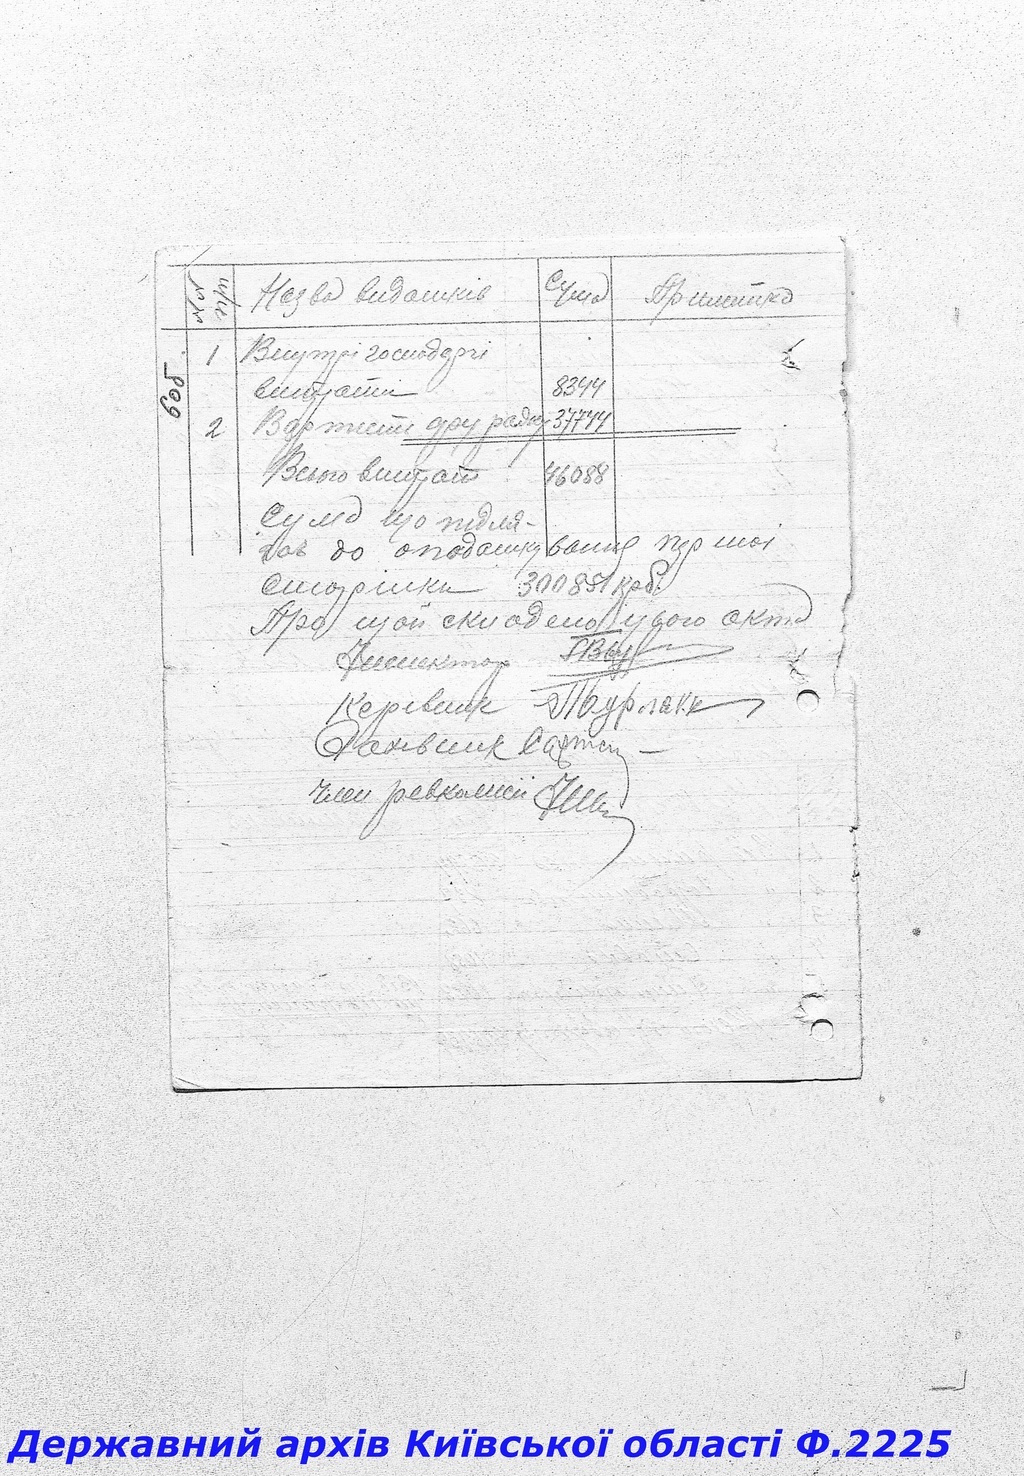 №№ п/п Назва видатків Сума Примітка
6об.
1 Внутрі господарчі
витрати 8344
2 37744
Всього витрат 46088
Сума що підля-
гає до оподаткування першої
сторінки 300851 крб.
Про що й складено цього акта
Інспектор
Керівник
Рахівник
Член ревкомісії
Державний архів Київської області Ф.2225